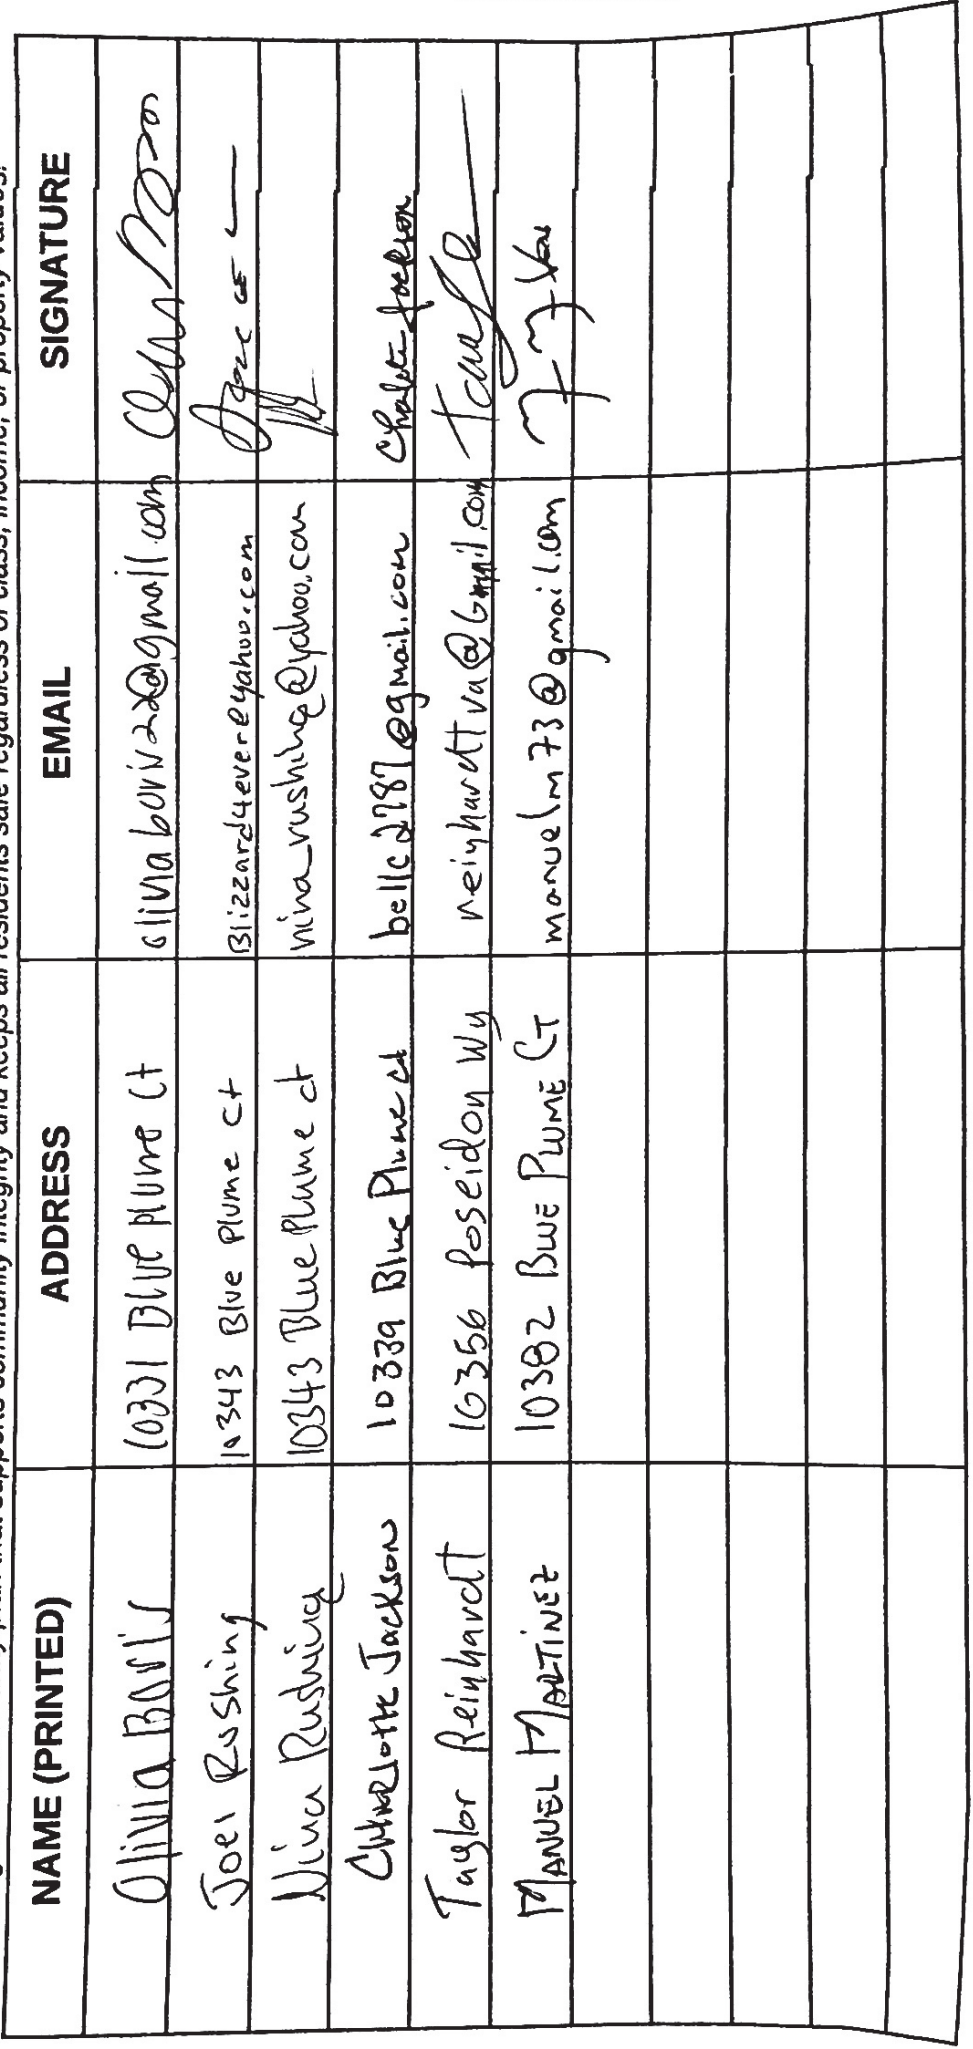 community integrity and keeps all residents safe regardless of class, income, or property values.
NAME (PRINTED) ADDRESS EMAIL SIGNATURE
Olivia Boris 10331 Blue plume Ct oliviaboris22@gmail.com
Joel Rushing 10343 Blue Plume Ct Blizzard4ever@yahoo.com
Nina Rushing 10343 Blue Plume ct nina_rushing@yahoo.com
Charlotte Jackson 10339 Blue Plume ct bellc2787@gmail.com Charlotte Jackson
Taylor Reinhardt 10356 Poseidon Wy reinhardtva@Gmail.com
MANUEL MARTINEZ 10382 BLUE PLUME CT manuelm73@gmail.com